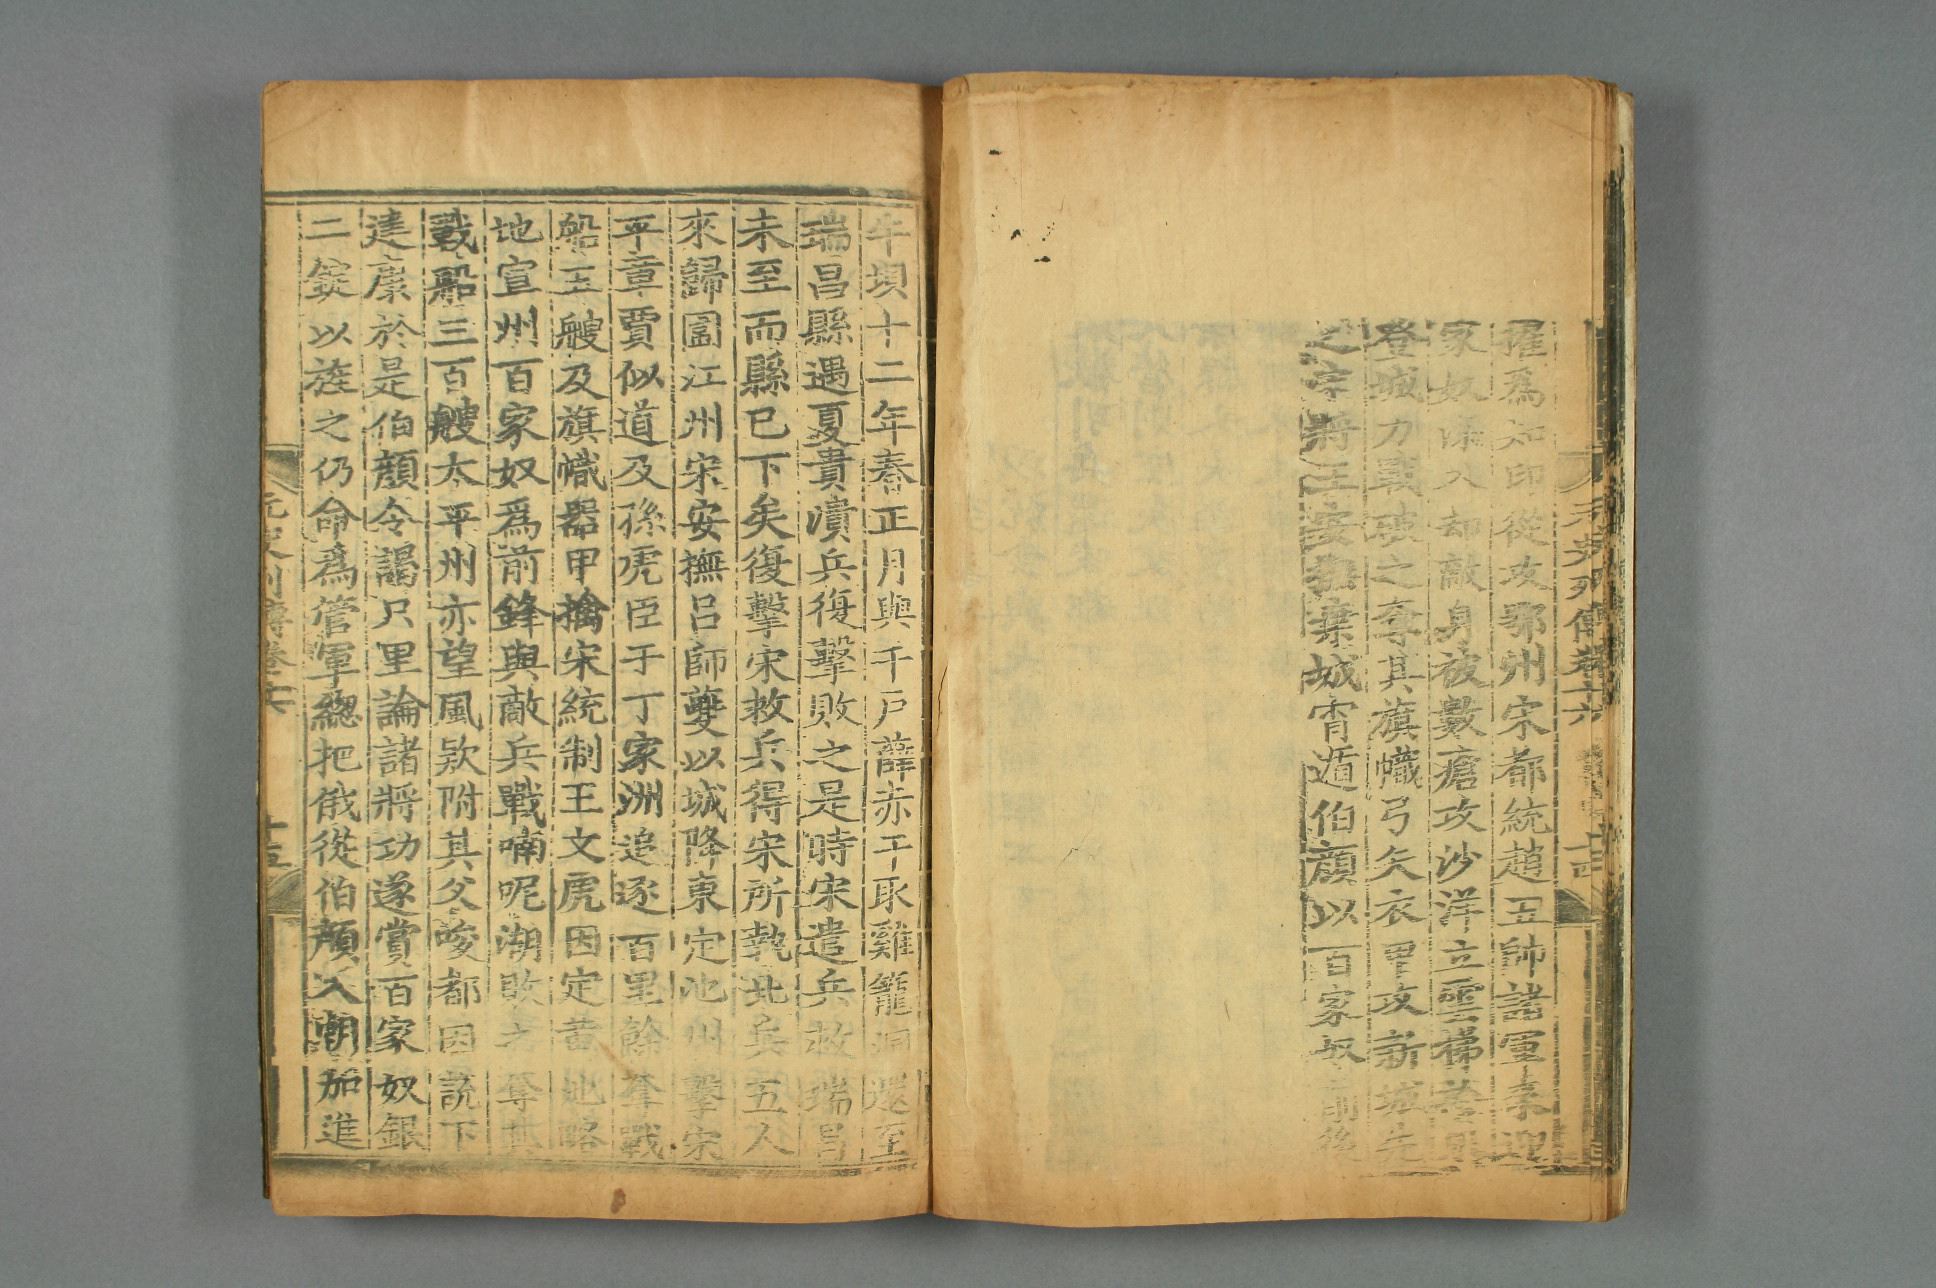 元史列傳卷十六
十四
擢爲知印從攻鄂州宋都統趙五帥諸軍來迎
家奴深入却敵身被數瘡攻沙洋立雲梯於
登城力戰破之奪其旗幟弓矢衣甲攻新城先
之宋將王安撫棄城宵遁伯顔以百家奴前後
牛垻十二年春正月與千戸薛赤干取雞籠洞還至
瑞昌縣遇夏貴潰兵復擊敗之是時宋遣兵救瑞昌
未至而縣已下矣復擊宋救兵得宋所執北兵五人
來歸圖江州宋安撫呂師夔以城降東定池州擊宋
平章賈似道及孫虎臣于丁家洲追逐百里餘奪戰
船五艘及旗幟器甲擒宋統制王文虎因定黃池略
地宣州百家奴爲前鋒與敵兵戰喃呢湖敗之奪其
戰船三百艘太平州亦望風欵附其父唆都因説下
建康於是伯顔令謁只里論諸將功遂賞百家奴銀
二錠以旌之仍命爲管軍緫把俄從伯顔入朝加進
元史列傳卷十六
十五